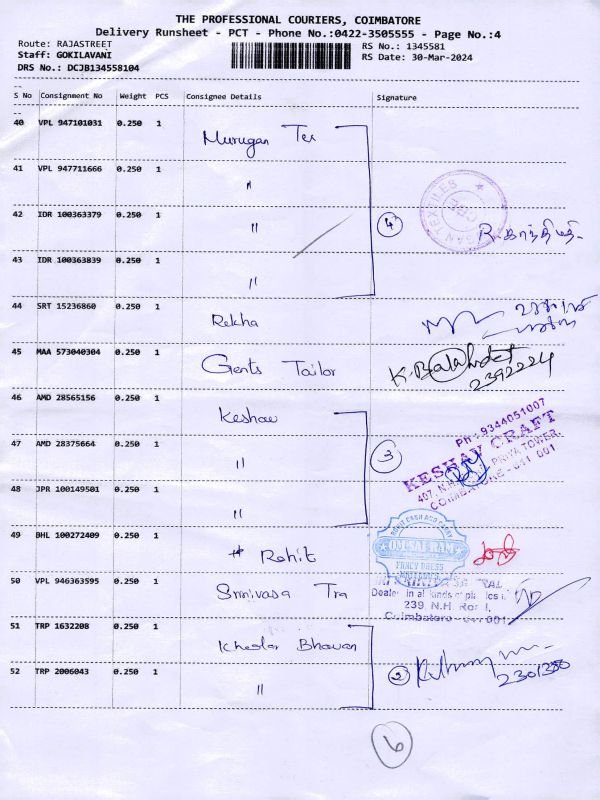 THE PROFESSIONAL COURIERS, COIMBATORE
Delivery Runsheet - PCT - Phone No.:0422-3505555 - Page No.:4
Route: RAJASTREET RS No.: 1345581
Staff: GOKILAVANI RS Date: 30-Mar-2024
DRS No.: DCJB134558104
S No Consignment No Weight PCS Consignee Details Signature
40 VPL 947101031 0.250 1 Murugan Tex
41 VPL 947711666 0.250 1 "
42 IDR 100363379 0.250 1 " 4 R.காந்திமதி
43 IDR 100363839 0.250 1 "
44 SRT 15236860 0.250 1 Rekha
45 MAA 573040304 0.250 1 Gents Tailor 2392224
46 AMD 28565156 0.250 1 Keshav
Ph : 9344051007
47 AMD 28375664 0.250 1 " 3 KESHAV CRAFT
PRIYA TOWER,
COIMBATORE - 641 001
48 JPR 100149501 0.250 1 "
49 BHL 100272409 0.250 1 # Rohit
OM SAI RAM
FANCY DRESS
50 VPL 946363595 0.250 1 Srinivasa Tra
Dealer in all kinds of plastics
239, N.H. Road,
Coimbatore - 641 001
51 TRP 1632208 0.250 1 Khadar Bhavan
52 TRP 2006043 0.250 1 " 2 2301350
6